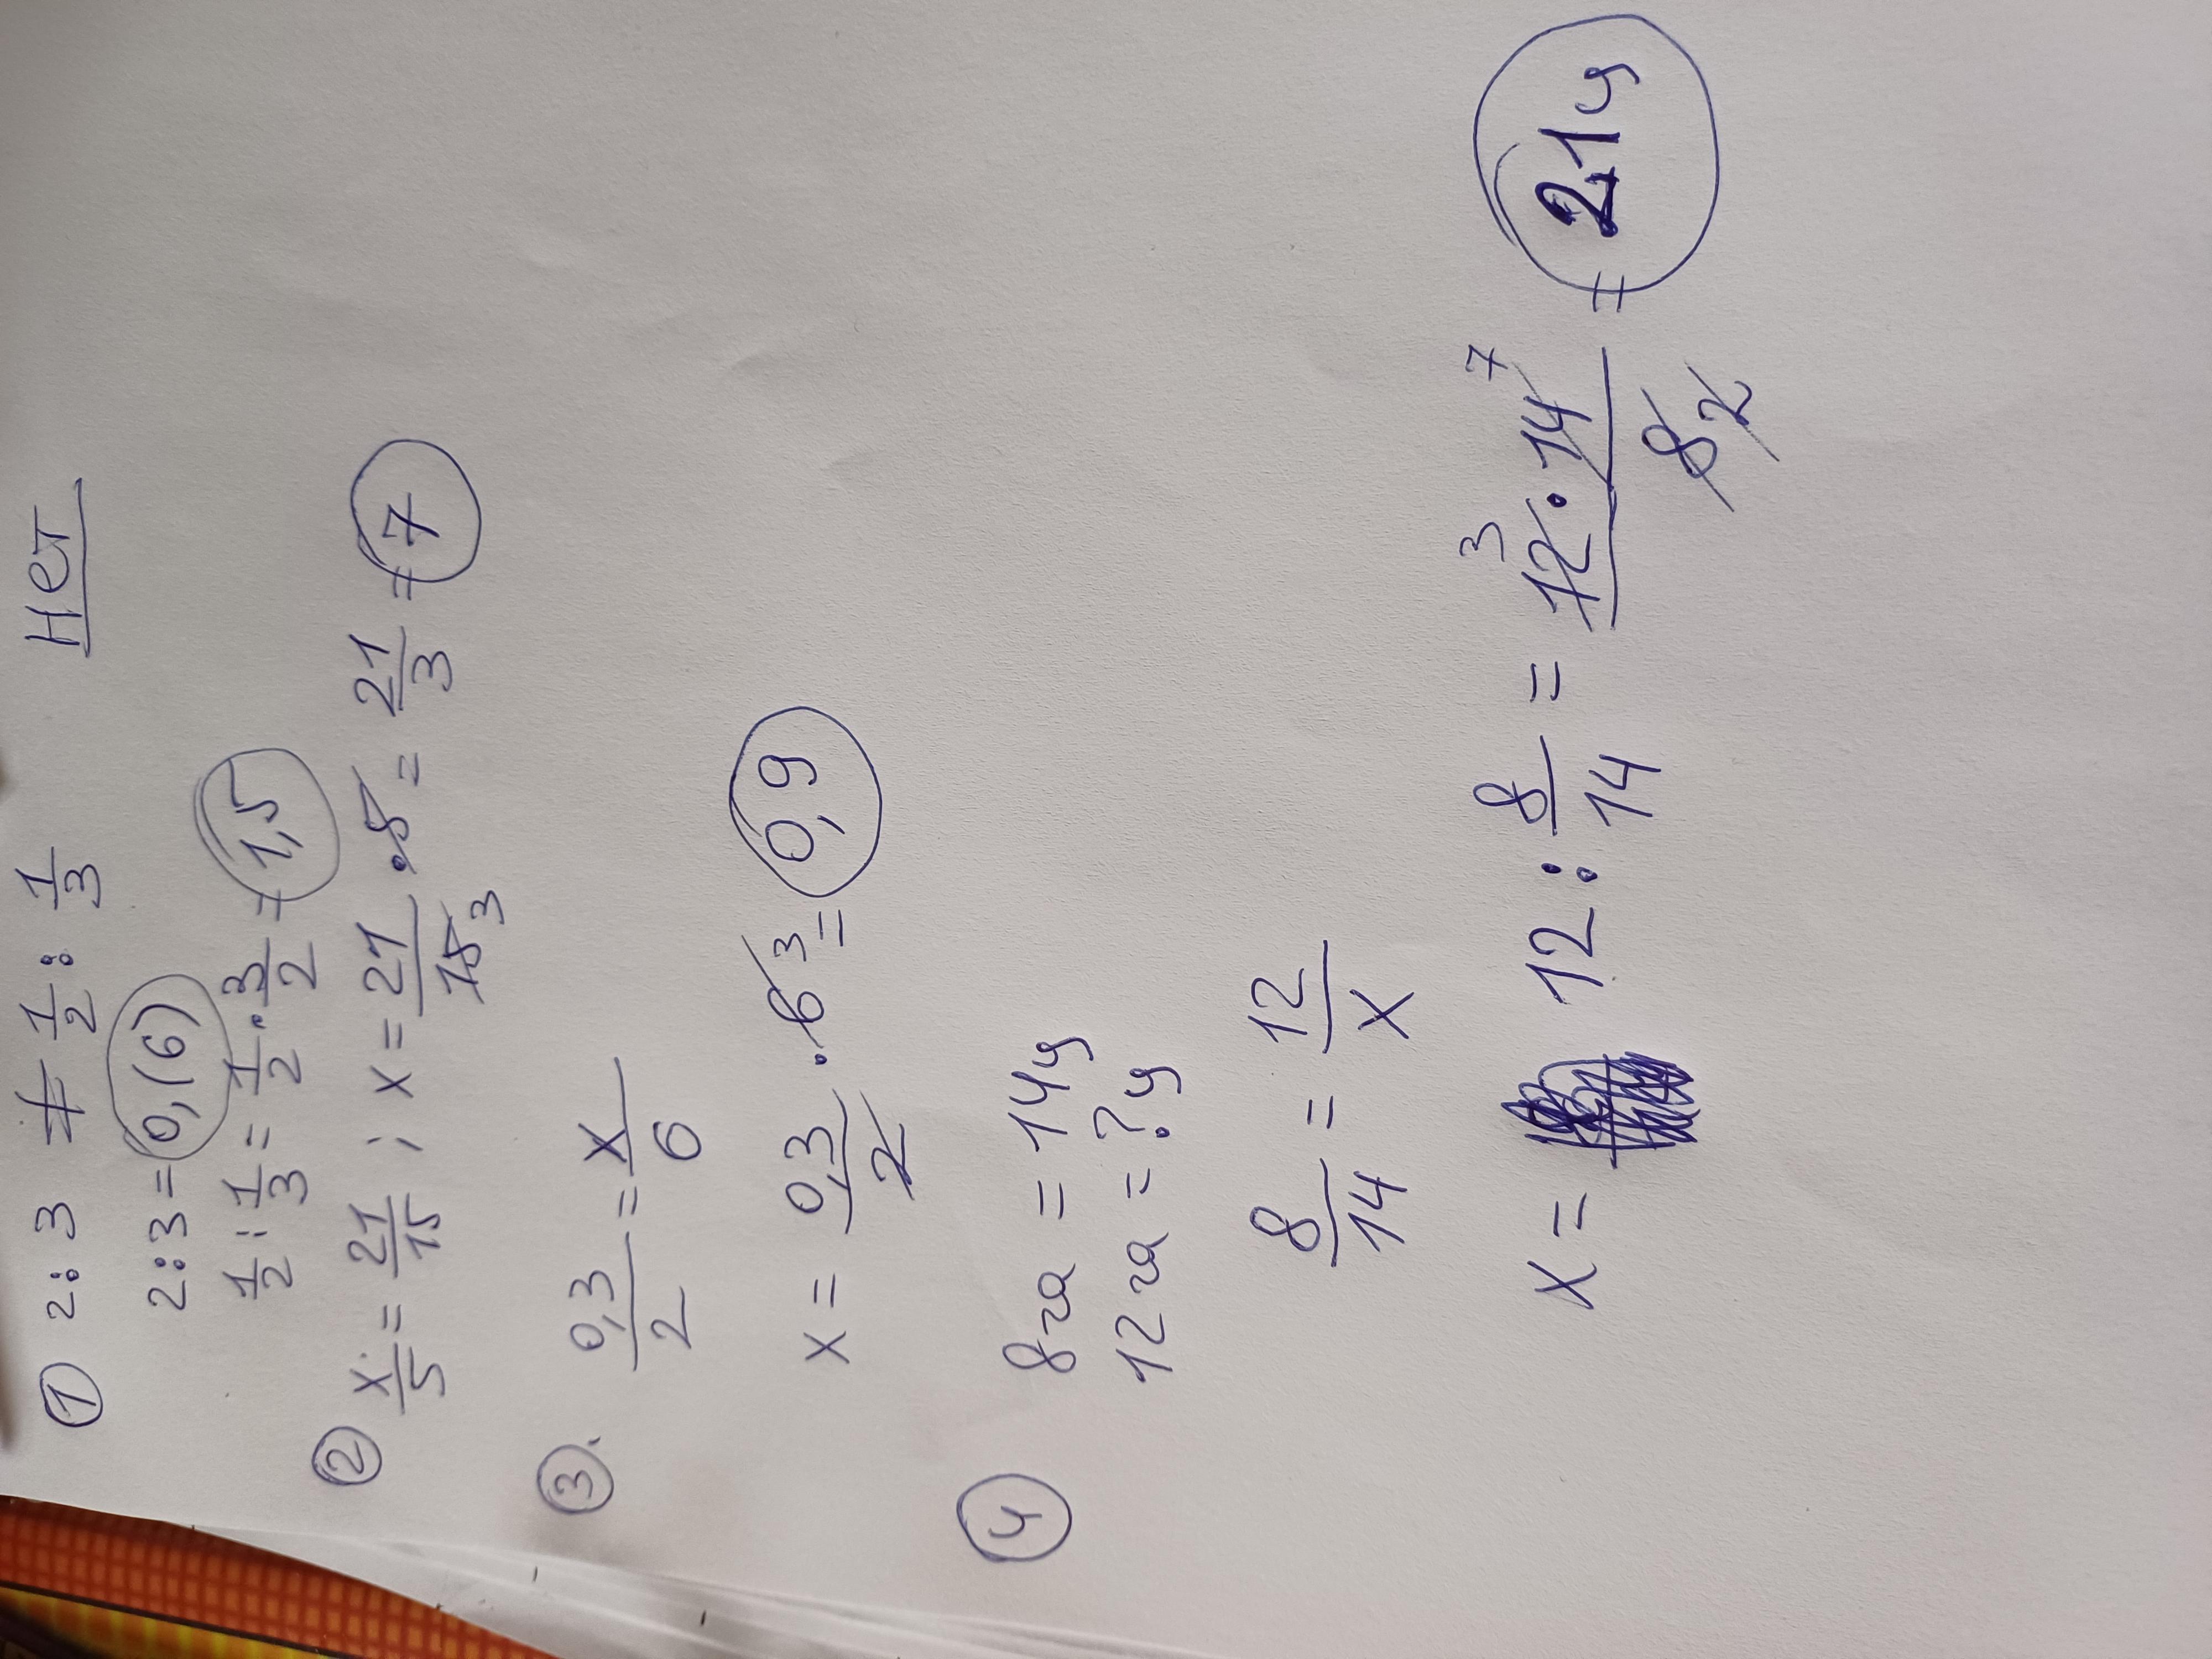 ① 2:3 ≠ 1/2 : 1/3 Нет
2:3 = 0,(6)
1/2 : 1/3 = 1/2 · 3/2 = 1,5
② x/5 = 21/15 ; x = 21/15 3 · 5 = 21/3 = 7
③ 0,3/2 = x/6
x = 0,3/2 · 6 3 = 0,9
④ 8 га = 14ч
12 га = ? ч
8/14 = 12/x
x = 12 : 8/14 = 12 3 · 14 7 / 8 2 = 21ч